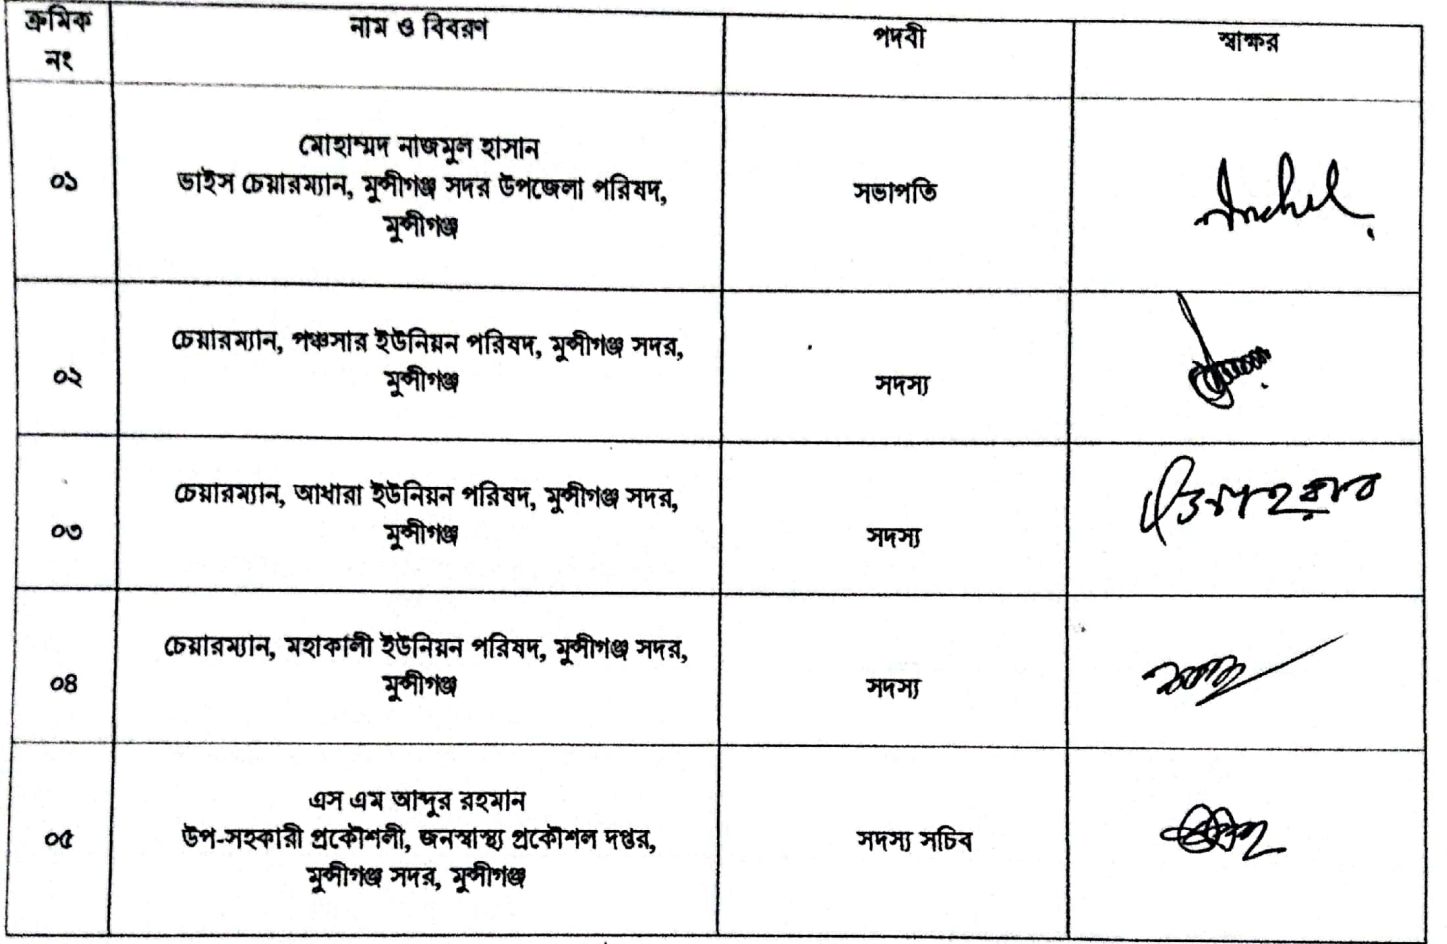 ক্রমিক নং নাম ও বিবরণ পদবী স্বাক্ষর
মোহাম্মদ নাজমুল হাসান
০১ ভাইস চেয়ারম্যান, মুন্সীগঞ্জ সদর উপজেলা পরিষদ, সভাপতি
মুন্সীগঞ্জ
চেয়ারম্যান, পঞ্চসার ইউনিয়ন পরিষদ, মুন্সীগঞ্জ সদর,
০২ মুন্সীগঞ্জ সদস্য
চেয়ারম্যান, আধারা ইউনিয়ন পরিষদ, মুন্সীগঞ্জ সদর,
০৩ মুন্সীগঞ্জ সদস্য
চেয়ারম্যান, মহাকালী ইউনিয়ন পরিষদ, মুন্সীগঞ্জ সদর,
০৪ মুন্সীগঞ্জ সদস্য
এস এম আব্দুর রহমান
০৫ উপ-সহকারী প্রকৌশলী, জনস্বাস্থ্য প্রকৌশল দপ্তর, সদস্য সচিব
মুন্সীগঞ্জ সদর, মুন্সীগঞ্জ